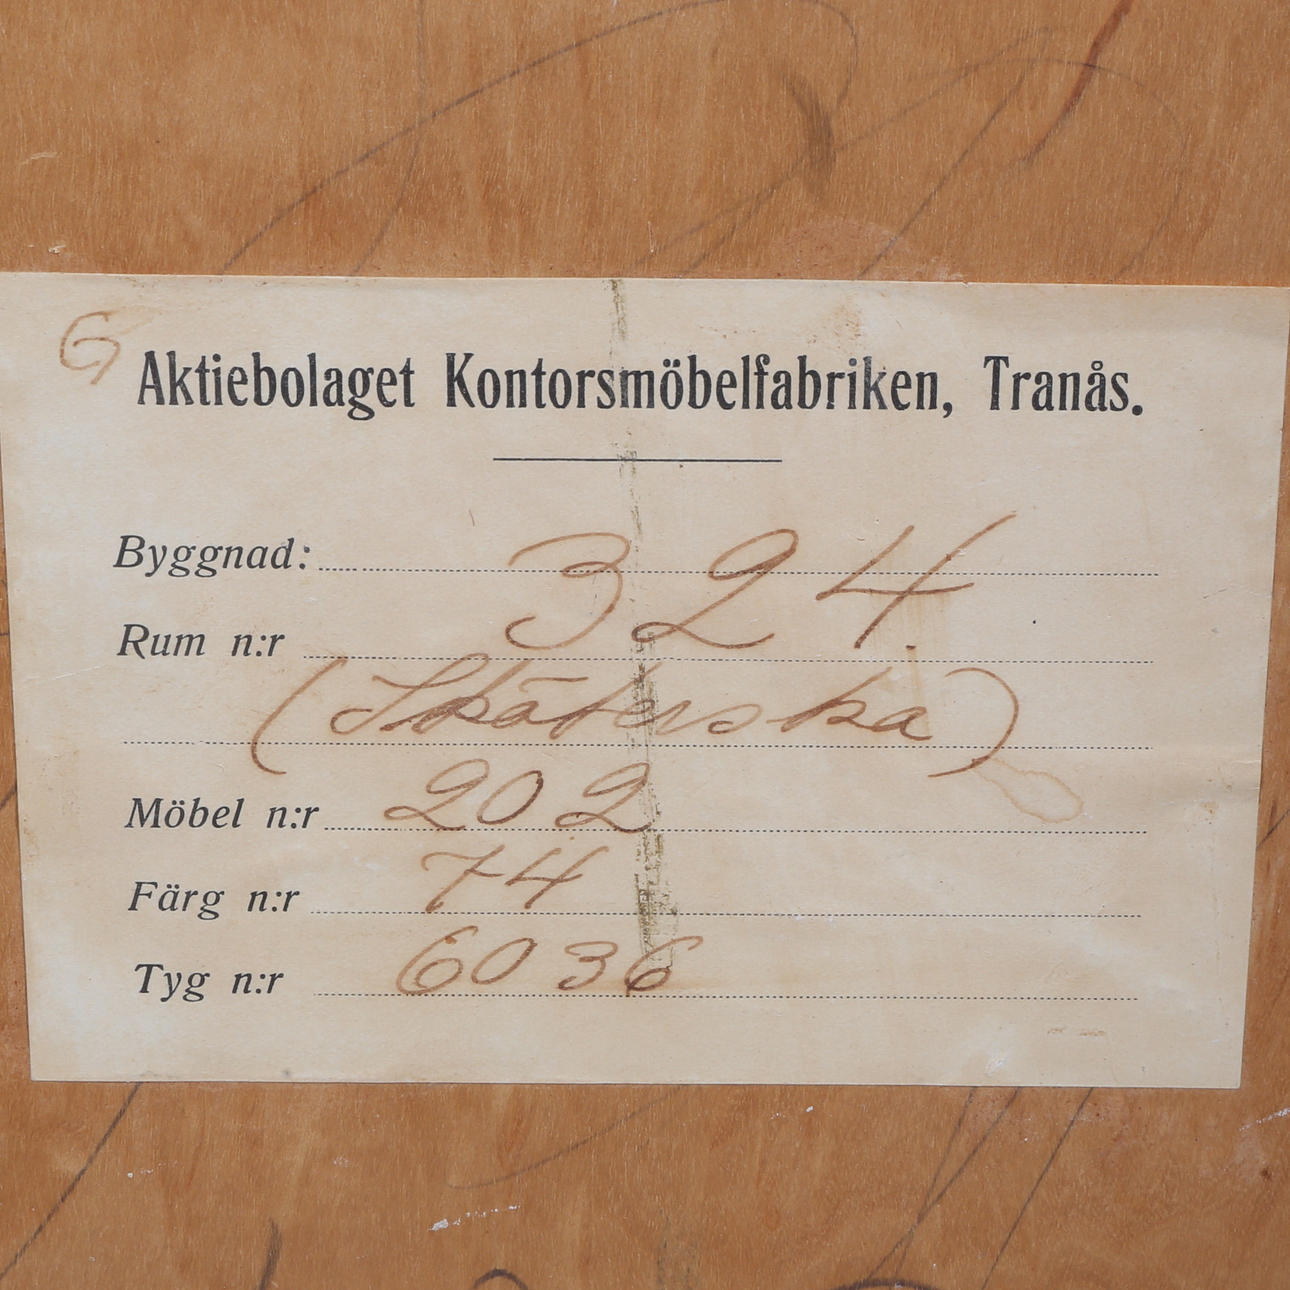 G
Aktiebolaget Kontorsmöbelfabriken, Tranås.
Byggnad: 324.
Rum n:r
(Sköterska)
Möbel n:r 202
Färg n:r 74
Tyg n:r 6036